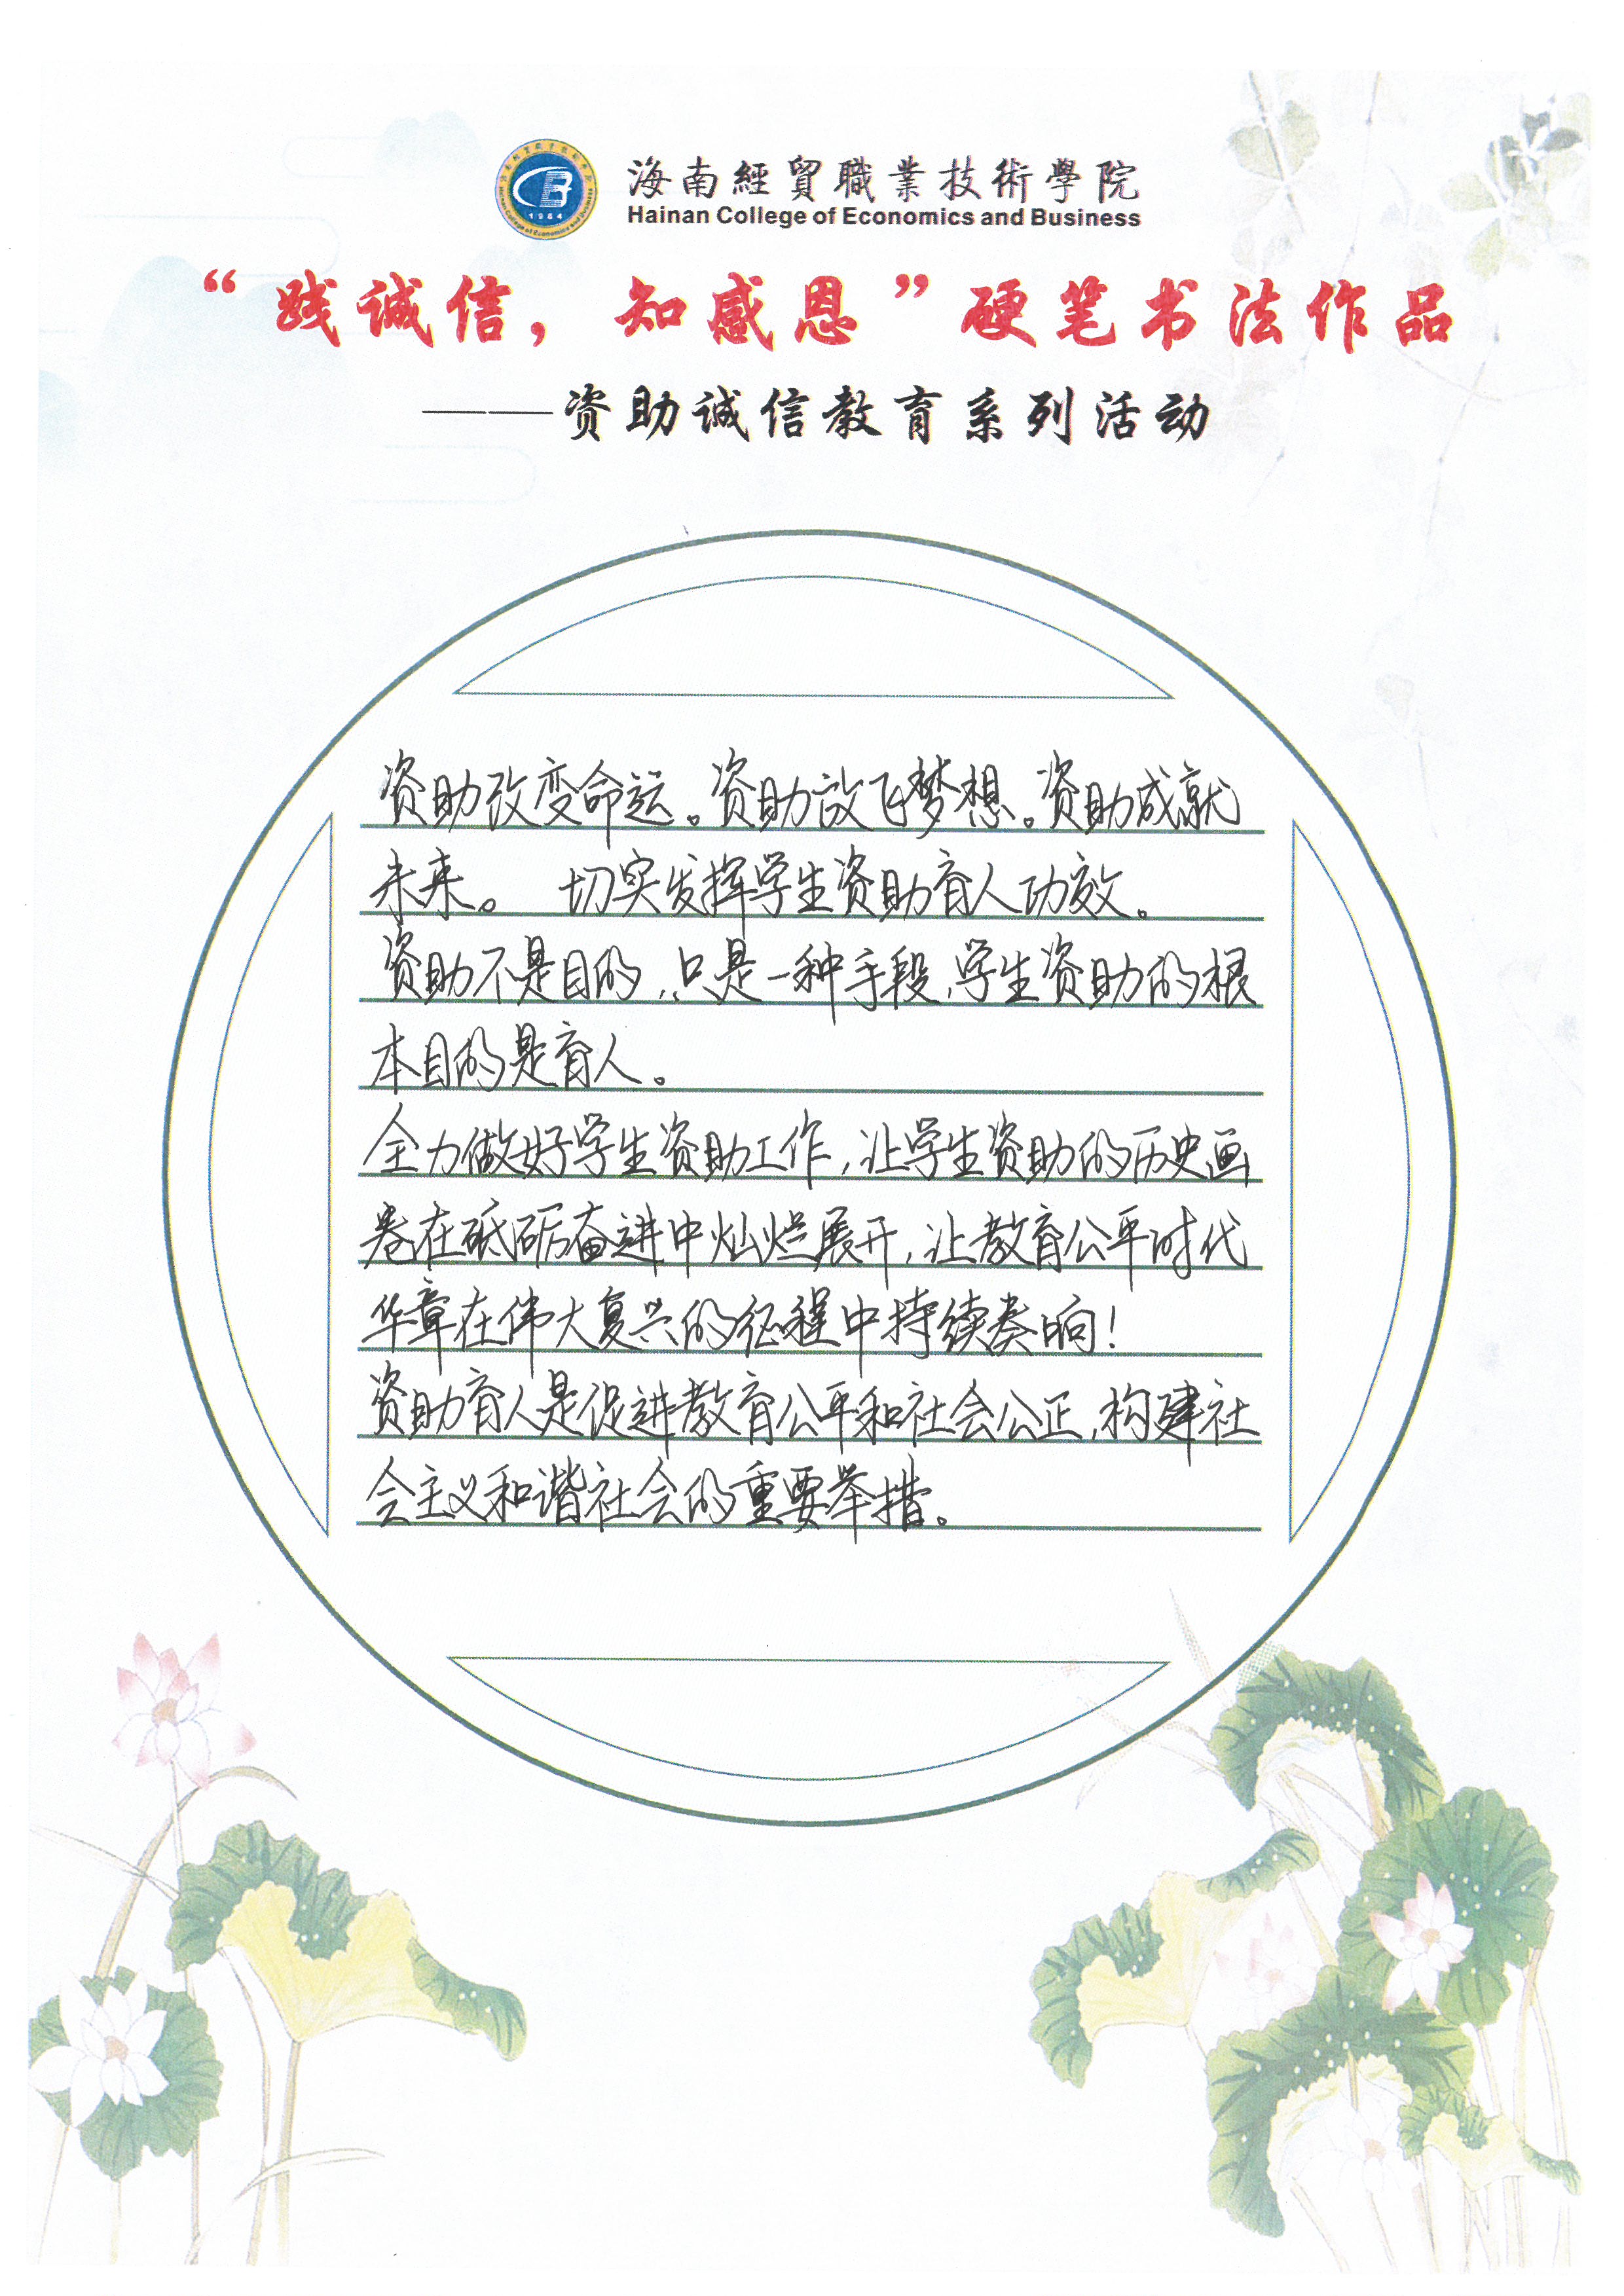 海南經貿職業技術學院
Hainan College of Economics and Business
“践诚信，知感恩”硬笔书法作品
——资助诚信教育系列活动
资助改变命运。资助放飞梦想。资助成就
未来。 切实发挥学生资助育人功效。
资助不是目的，只是一种手段，学生资助的根
本目的是育人。
全力做好学生资助工作，让学生资助的历史画
卷在砥砺奋进中灿烂展开，让教育公平时代
华章在伟大复兴的征程中持续奏响！
资助育人是促进教育公平和社会公正，构建社
会主义和谐社会的重要举措。
1984
Hainan College of Economics and Business